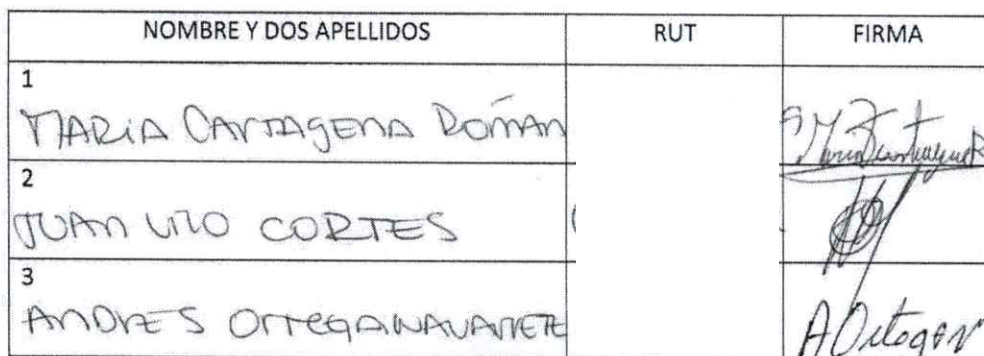 NOMBRE Y DOS APELLIDOS RUT FIRMA
1
MARIA CARTAGENA ROMAN
2
JUAN CORTES
3
ANDRES ORTEGA NAVARRETE A Ortega N